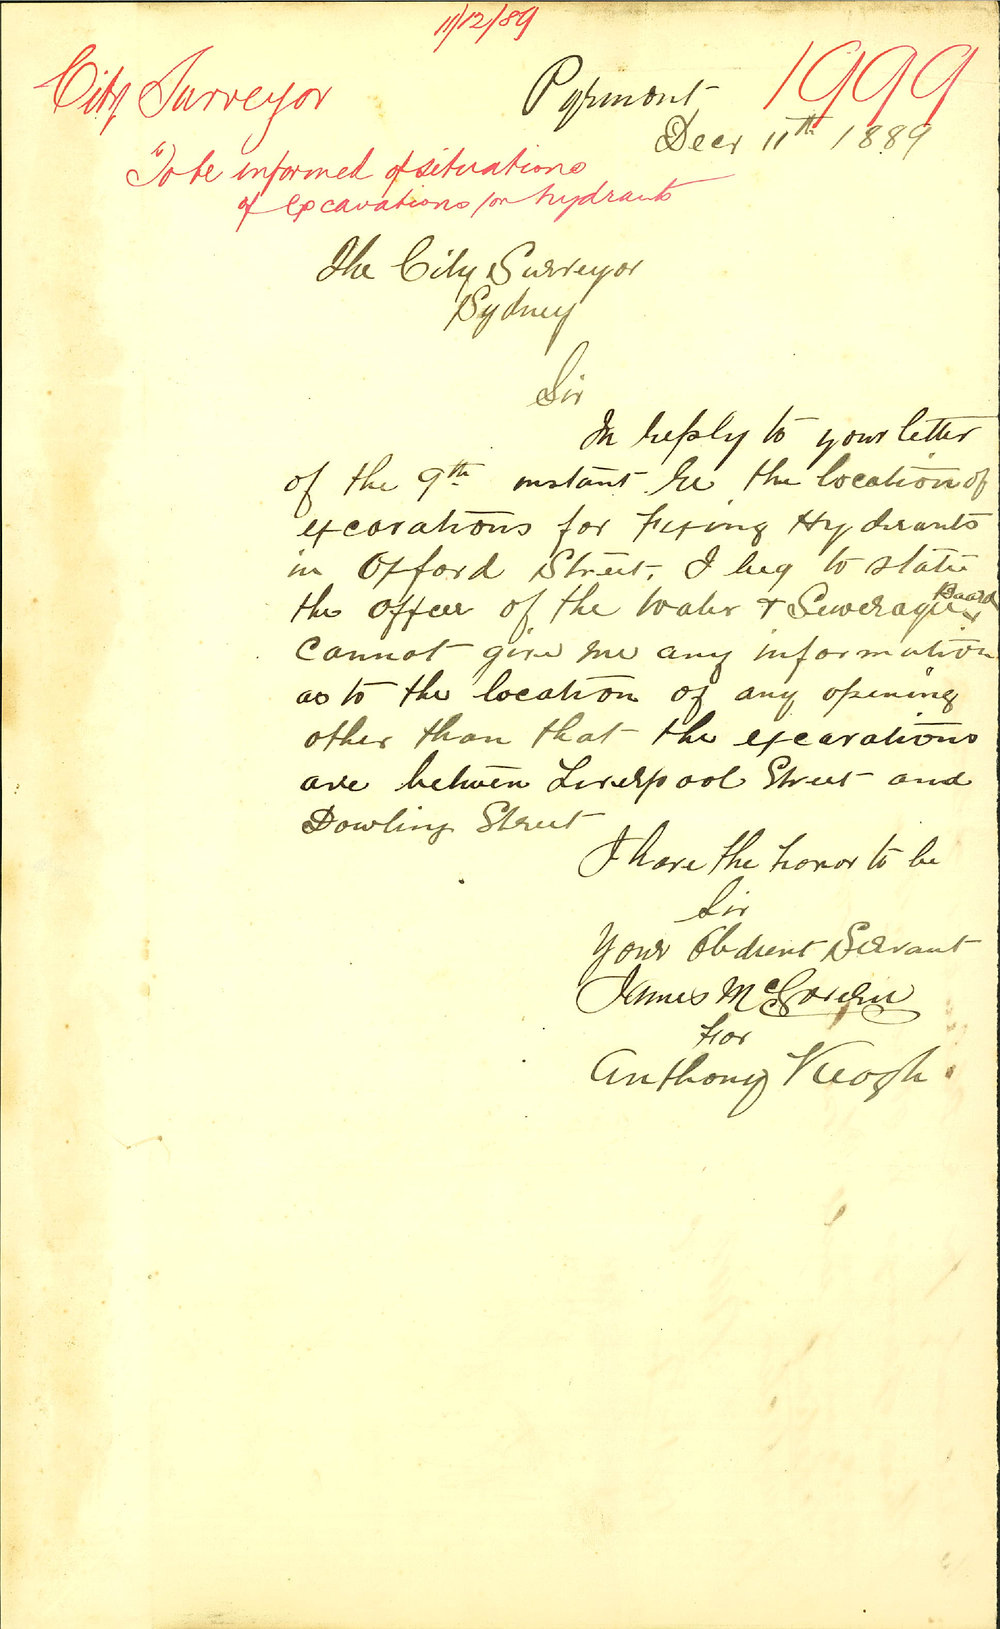 11/12/89
City Surveyor
Pyrmont
1999
Decr 11th 1889
"To be informed of situations
of excavations for hydrants
The City Surveyor
Sydney
Sir
In reply to your letter
of the 9th instant re the location of
excavations for Fixing Hydrants
in Oxford Street, I beg to state
the officer of the Water & Sewerage Board
Cannot give me any information
as to the location of any opening
other than that the excavations
are between Liverpool Street and
Dowling Street
I have the honor to be
Sir
Your Obedient Servant
James
for
Anthony Keogh